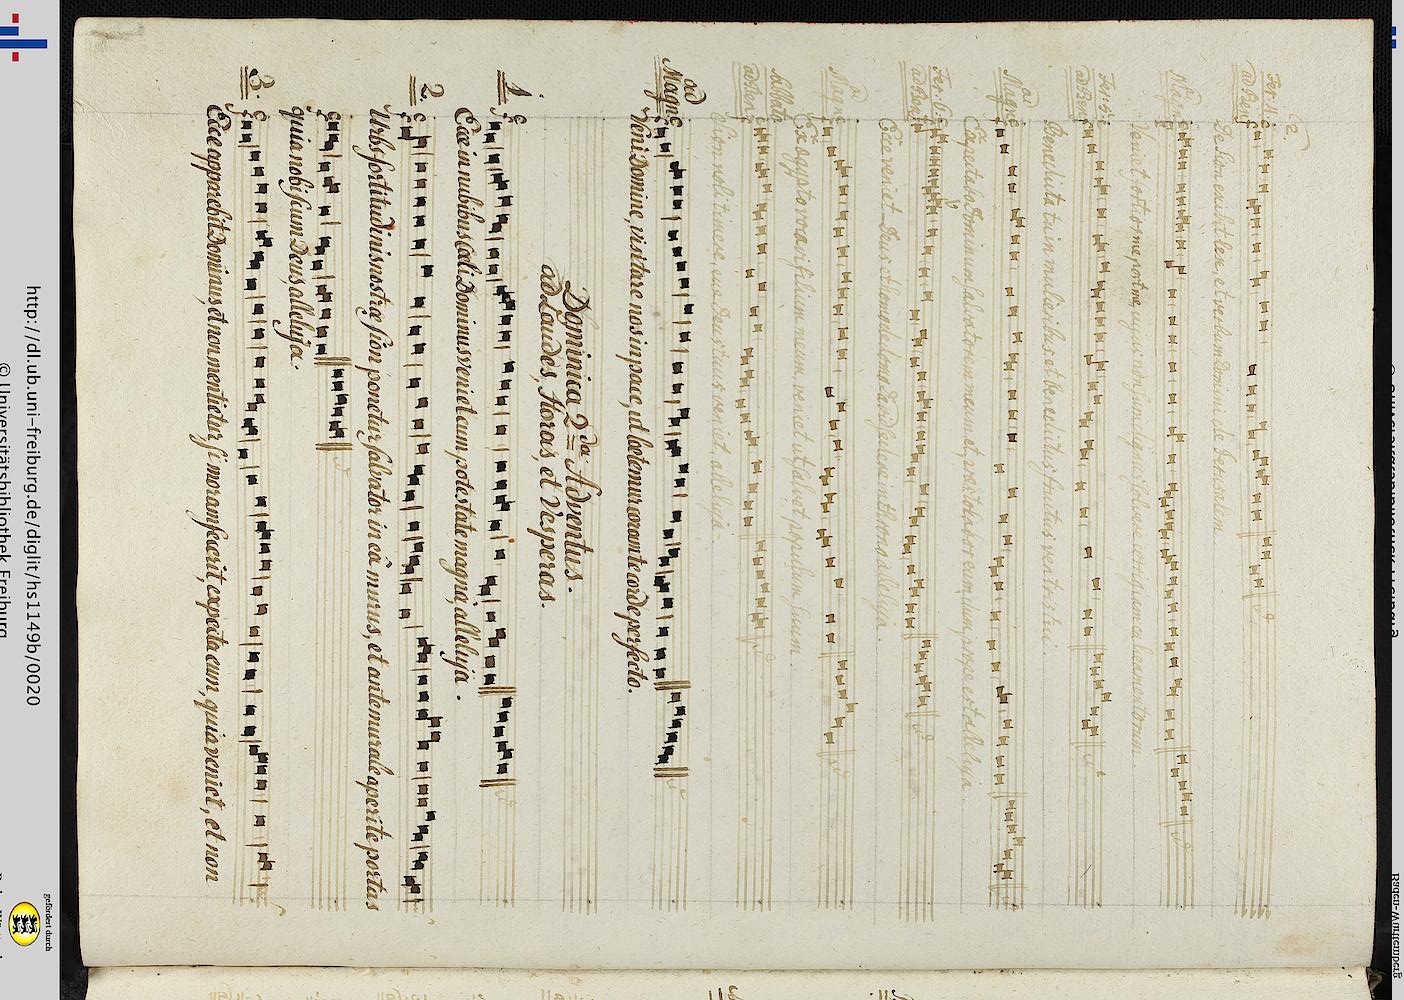 2.
Fer. 4.
ad Ben:
De Sion exibit lex, et verbum Domini de Jerusalem.
ad
Magn:
Fer: 5ta
ad Ben:
Benedicta tu in mulieribus et benedictus fructus ventris tui.
ad
Magn:
Expectabo Dominum salvatorem meum et praestolabor eum, dum prope est alleluja
Fer: 6.
ad Ben:
Ecce veniet Deus et homo de domo David sedere in throno alleluja.
ad
Magn:
Ex aegypto vocavi filium meum, veniet ut salvet populum suum.
Sabbato
ad Ben:
Sion noli timere, ecce Deus tuus veniet, alleluja.
ad
Magn:
Veni Domine, visitare nos in pace, ut laetemur coram te corde perfecto.
Dominica 2da Adventus.
ad Laudes, Horas, et Vesperas.
1.
Ecce in nubibus Coeli Dominus veniet cum potestate magna, alleluja.
2.
Urbs fortitudinis nostrae sion ponetur salvator in eâ murus, et antemurale aperite portas
quia nobiscum Deus alleluja.
3.
Ecce apparebit Dominus, et non mentietur, si moram fecerit, expecta eum, quia veniet, et non
http://dl.ub.uni-freiburg.de/diglit/hs1149b/0020
© Universitätsbibliothek Freiburg
gefördert durch